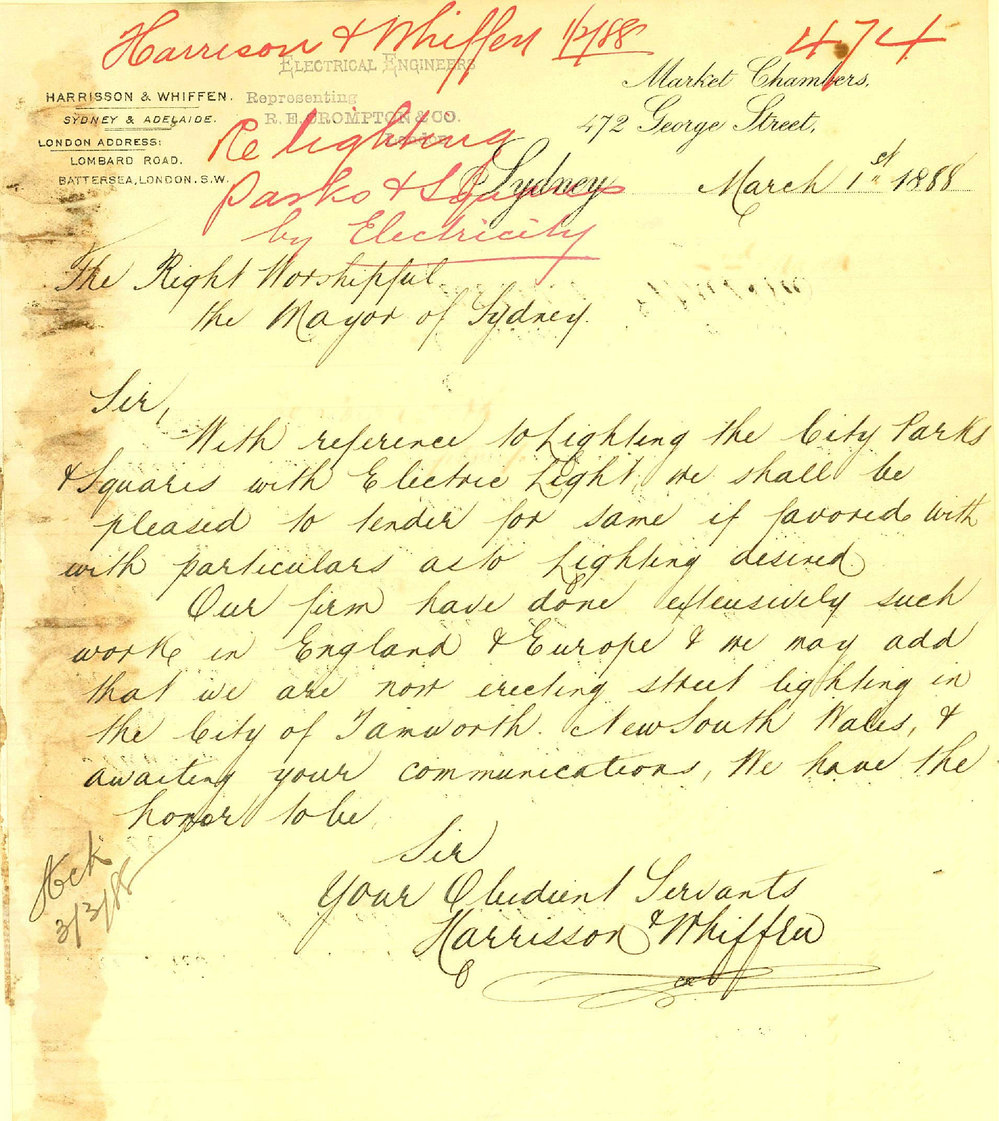 Harrison & Whiffen 1/2/88 474
ELECTRICAL ENGINEERS
HARRISSON & WHIFFEN.
SYDNEY & ADELAIDE.
LONDON ADDRESS:
LOMBARD ROAD.
BATTERSEA, LONDON. S.W.
Representing
R. E. CROMPTON & CO.
London
Re lighting
Parks & Squares
by Electricity
Market Chambers,
472 George Street,
Sydney March 1st 1888
The Right Worshipful
the Mayor of Sydney.
Sir,
With reference to Lighting the City Parks
& Squares with Electric Light, we shall be
pleased to tender for same if favored with
with particulars as to Lighting desired
Our firm have done extensively such
work in England & Europe & we may add
that we are now erecting street lighting in
the City of Tamworth. New South Wales, &
awaiting your communications, We have the
honor to be
Sir
Your Obedient Servants
Harrisson & Whiffen
Ack
3/3/88